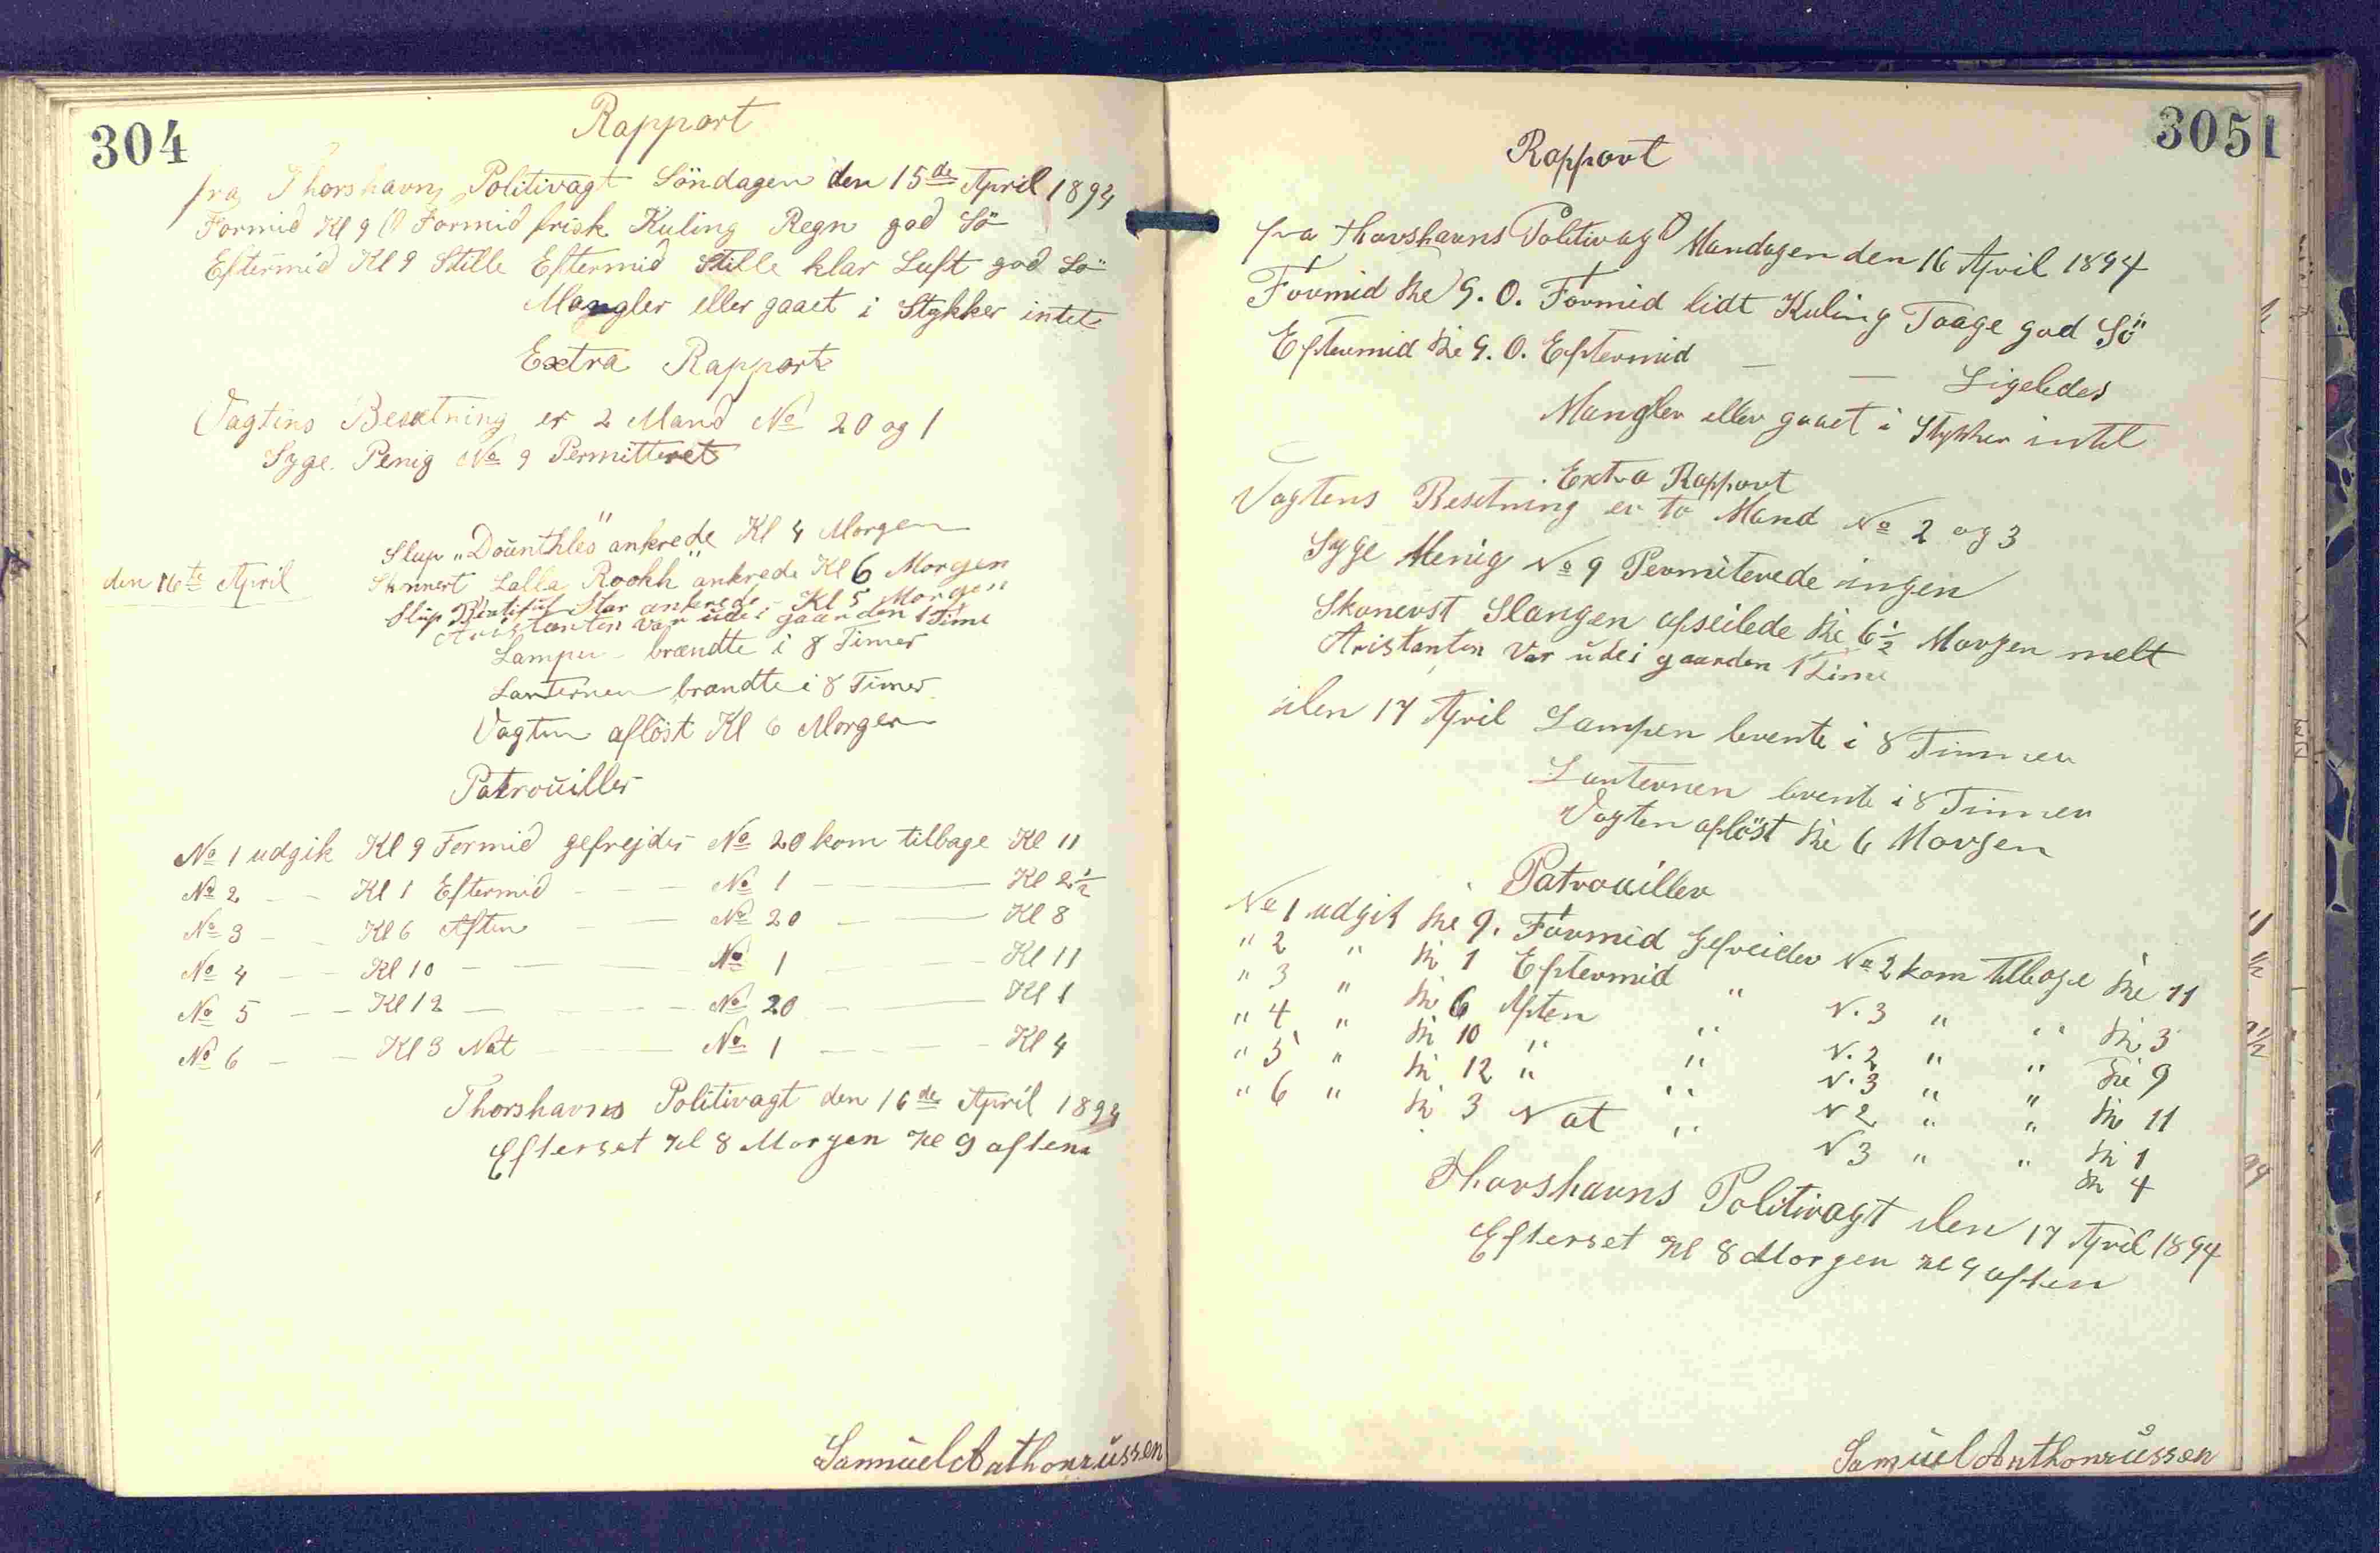 304
Rapport
fra Thorshavns Politivagt Söndagen den 15de April 1894
Formid Kl 9 O Formid frisk Kuling Regn god Sö
Eftermid Kl 9 Stille Eftermid Stille klar Luft god Sö
Mangler eller gaaet i Stykker intet
Extra Rapport
Vagtens Besætning er 2 Mand No 20 og 1
Syge Menig No 9 Permitteret
Slup "Dounthles" ankrede Kl 4 Morgen
den 16te April Skonnert Lalla Rookh ankrede Kl 6 Morgen
Slup Star ankrede Kl 5 Morgen
Aristanten var ude i gaarden 1 Time
Lampen brændte i 8 Timer
Lanternen brændte i 8 Timer
Vagten aflöst Kl 6 Morgen
Patrouiller
No 1 udgik Kl 9 Formid gefrejder No 20 kom tilbage Kl 11
No 2 — Kl 1 Eftermid — No 1 — Kl 2 1/2
No 3 — Kl 6 Aften — No 20 — Kl 8
No 4 — Kl 10 — No 1 — Kl 11
No 5 — Kl 12 — No 20 — Kl 1
No 6 — Kl 3 Nat — No 1 — Kl 4
Thorshavns Politivagt den 16de April 1894
Efterset Kl 8 Morgen Kl 9 aften
Samuel Anthoniüssen
305
Rapport
fra Thorshavns Politivagt Mandagen den 16 April 1894
Formid Kl 9. O. Formid lidt Kuling Taage god Sö
Eftermid Kl 9. O. Eftermid — — Ligeledes
Mangler eller gaaet i Stykker intet
Extra Rapport
Vagtens Besetning er to Mand No 2 og 3
Syge Menig No 9 Permiterede ingen
Skonerst Slangen afseilede Kl 6 1/2 Morgen melt
Aristanten Var ude i gaarden 1 Time
den 17 April Lampen brente i 8 Timmer
Lanternen brente i 8 Timmer
Vagten aflöst Kl 6 Morgen
Patrouiller
No 1 udgik Kl 9. Formid Gefreider No 2 kom tilbage Kl 11
" 2 " Kl 1 Eftermid " N. 3 " " Kl 3
" 3 " Kl 6 Aften " N. 2 " " Kl 9
" 4 " Kl 10 " " N. 3 " " Kl 11
" 5 " Kl 12 " " N 2 " " Kl 1
" 6 " Kl 3 Nat " N 3 " " Kl 4
Thorshavns Politivagt den 17 April 1894
Efterset Kl 8 Morgen Kl 9 aften
Samuel Anthoniüssen